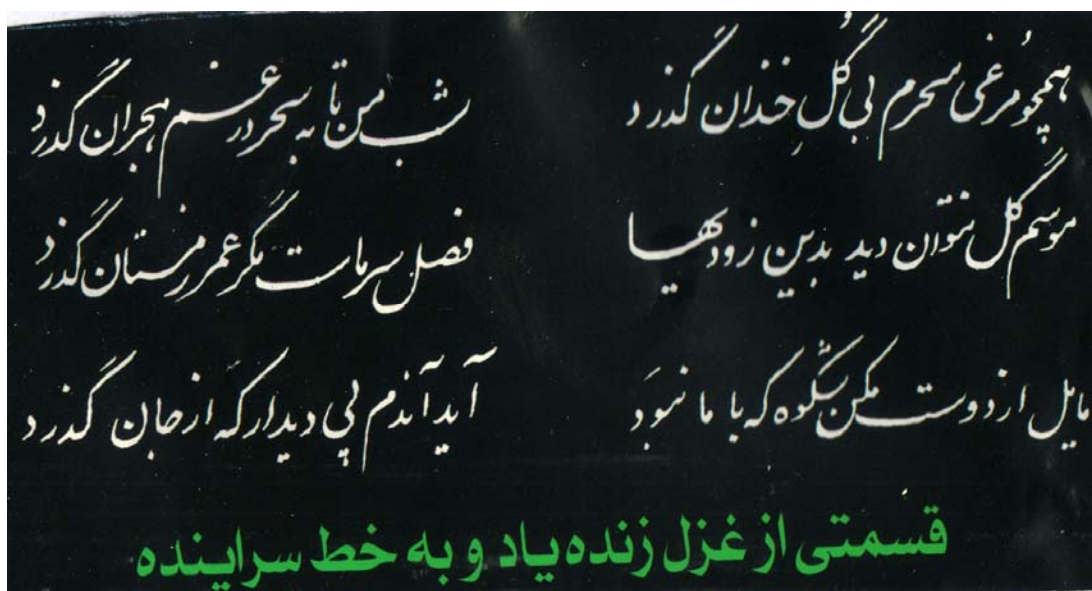 همچو مرغی سحرم بی گلِ خندان گذرد شب من تا به سحر در غم هجران گذرد
موسم گل نتوان دید بدین زودیها فصل سرماست مگر عمر زمستان گذرد
از دوست مکن شکوه که با ما نبوَد آید آندم پی دیدار که از جان گذرد
قسمتی از غزل زنده یاد و به خط سراینده